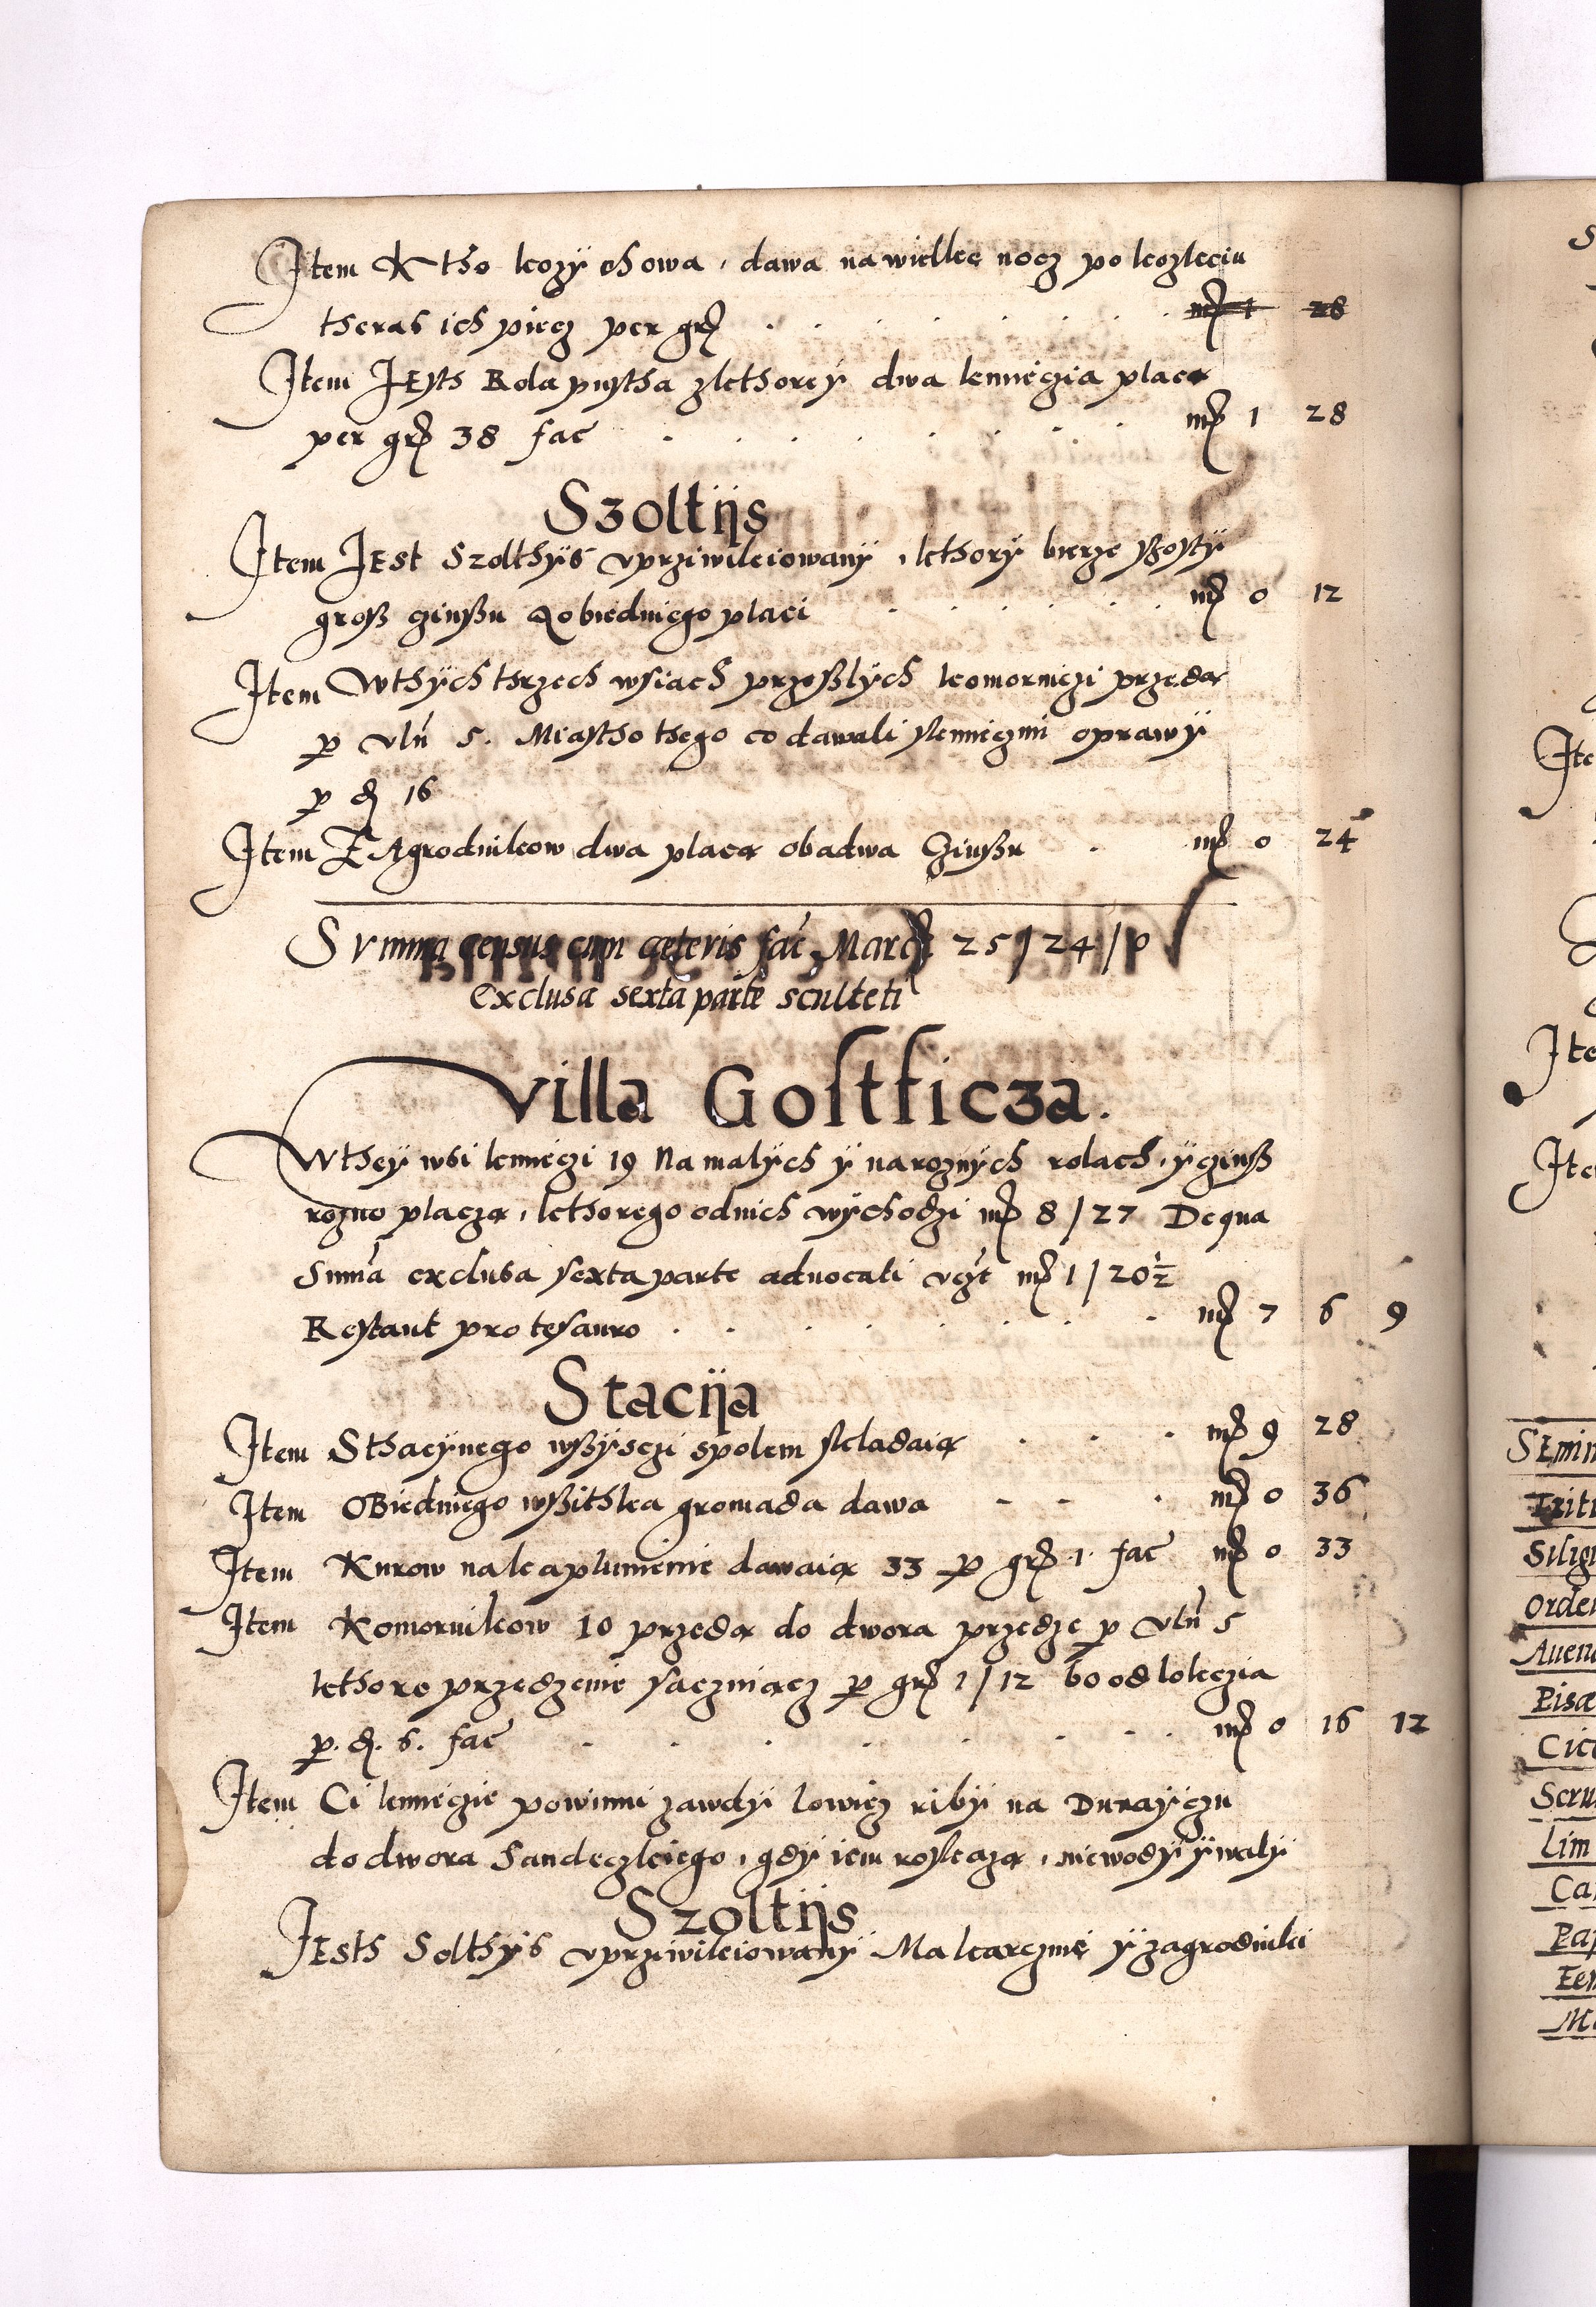 Item Ktho kozÿ chowa, dawa na wielkę nocz po kozlęciu
theras ich pięcz per gr̃ . . . . . . . . mr̃ 1 28
Item Jesth Rola pustha z kthoreÿ dwa kmieczia placą
per gr̃ 38 fac̃ . . . . . . . mr̃ 1 28
Szoltijs
Item Jest Szolthÿs vprziwileiowanÿ, kthorÿ bierze szostÿ
grosz czinszu Zobiedniego placi . . . . . mr̃ 0 12
Item Wthÿch thrzech wsiach przeszlÿch komorniczi przędą
ꝑ vln̄ 5. Miastho thego co dawali s kmieczmi oprawÿ
ꝑ ꝺ 16
Item ZAgrodnikow dwa placą obadwa Czinszu . mr̃ 0 24
Svmma census cum cęteris fac̃ Marc̃ 25/24/p
Exclusa sexta parte sculteti
Villa Gostficza.
Wtheÿ wsi kmieczi 19 Na malÿch ÿ na roznÿch rolach, ÿ czinsz
rozno placzą, kthorego od nich wÿchodzi mr̃ 8/27 De qua
Sum̄a exclusa sexta parte aduocati vczt̃ mr̃ 1/20½
Restant pro tesauro . . . . . . . . mr̃ 7 6 9
Stacija
Item Sthacÿnego wszÿsczi spolem skladaią . . . mr̃ 9 28
Item OBiedniego wszithka gromada dawa . . . mr̃ 0 36
Item Kurow na kaplunienie dawaią 33 ꝑ gr̃ 1 fac̃ mr̃ 0 33
Item Komornikow 10 przędą do dwora przędze ꝑ vln̄ 5
kthore przędzenie saczniącz ꝑ gr̃ 1/12 bo od lokczia
ꝑ. ꝺ. 6. fac̃ . . . . . . . . mr̃ 0 16 12
Item Ci kmieczie powinni zawdÿ lowicz ribÿ na Dunaÿczu
do dwora Sandeczkiego, gdÿ iem roskażą, niewodÿ ÿ walÿ
Szoltijs
Jesth Solthÿs vprziwileiowanÿ Ma karczmę ÿ zagrodniki